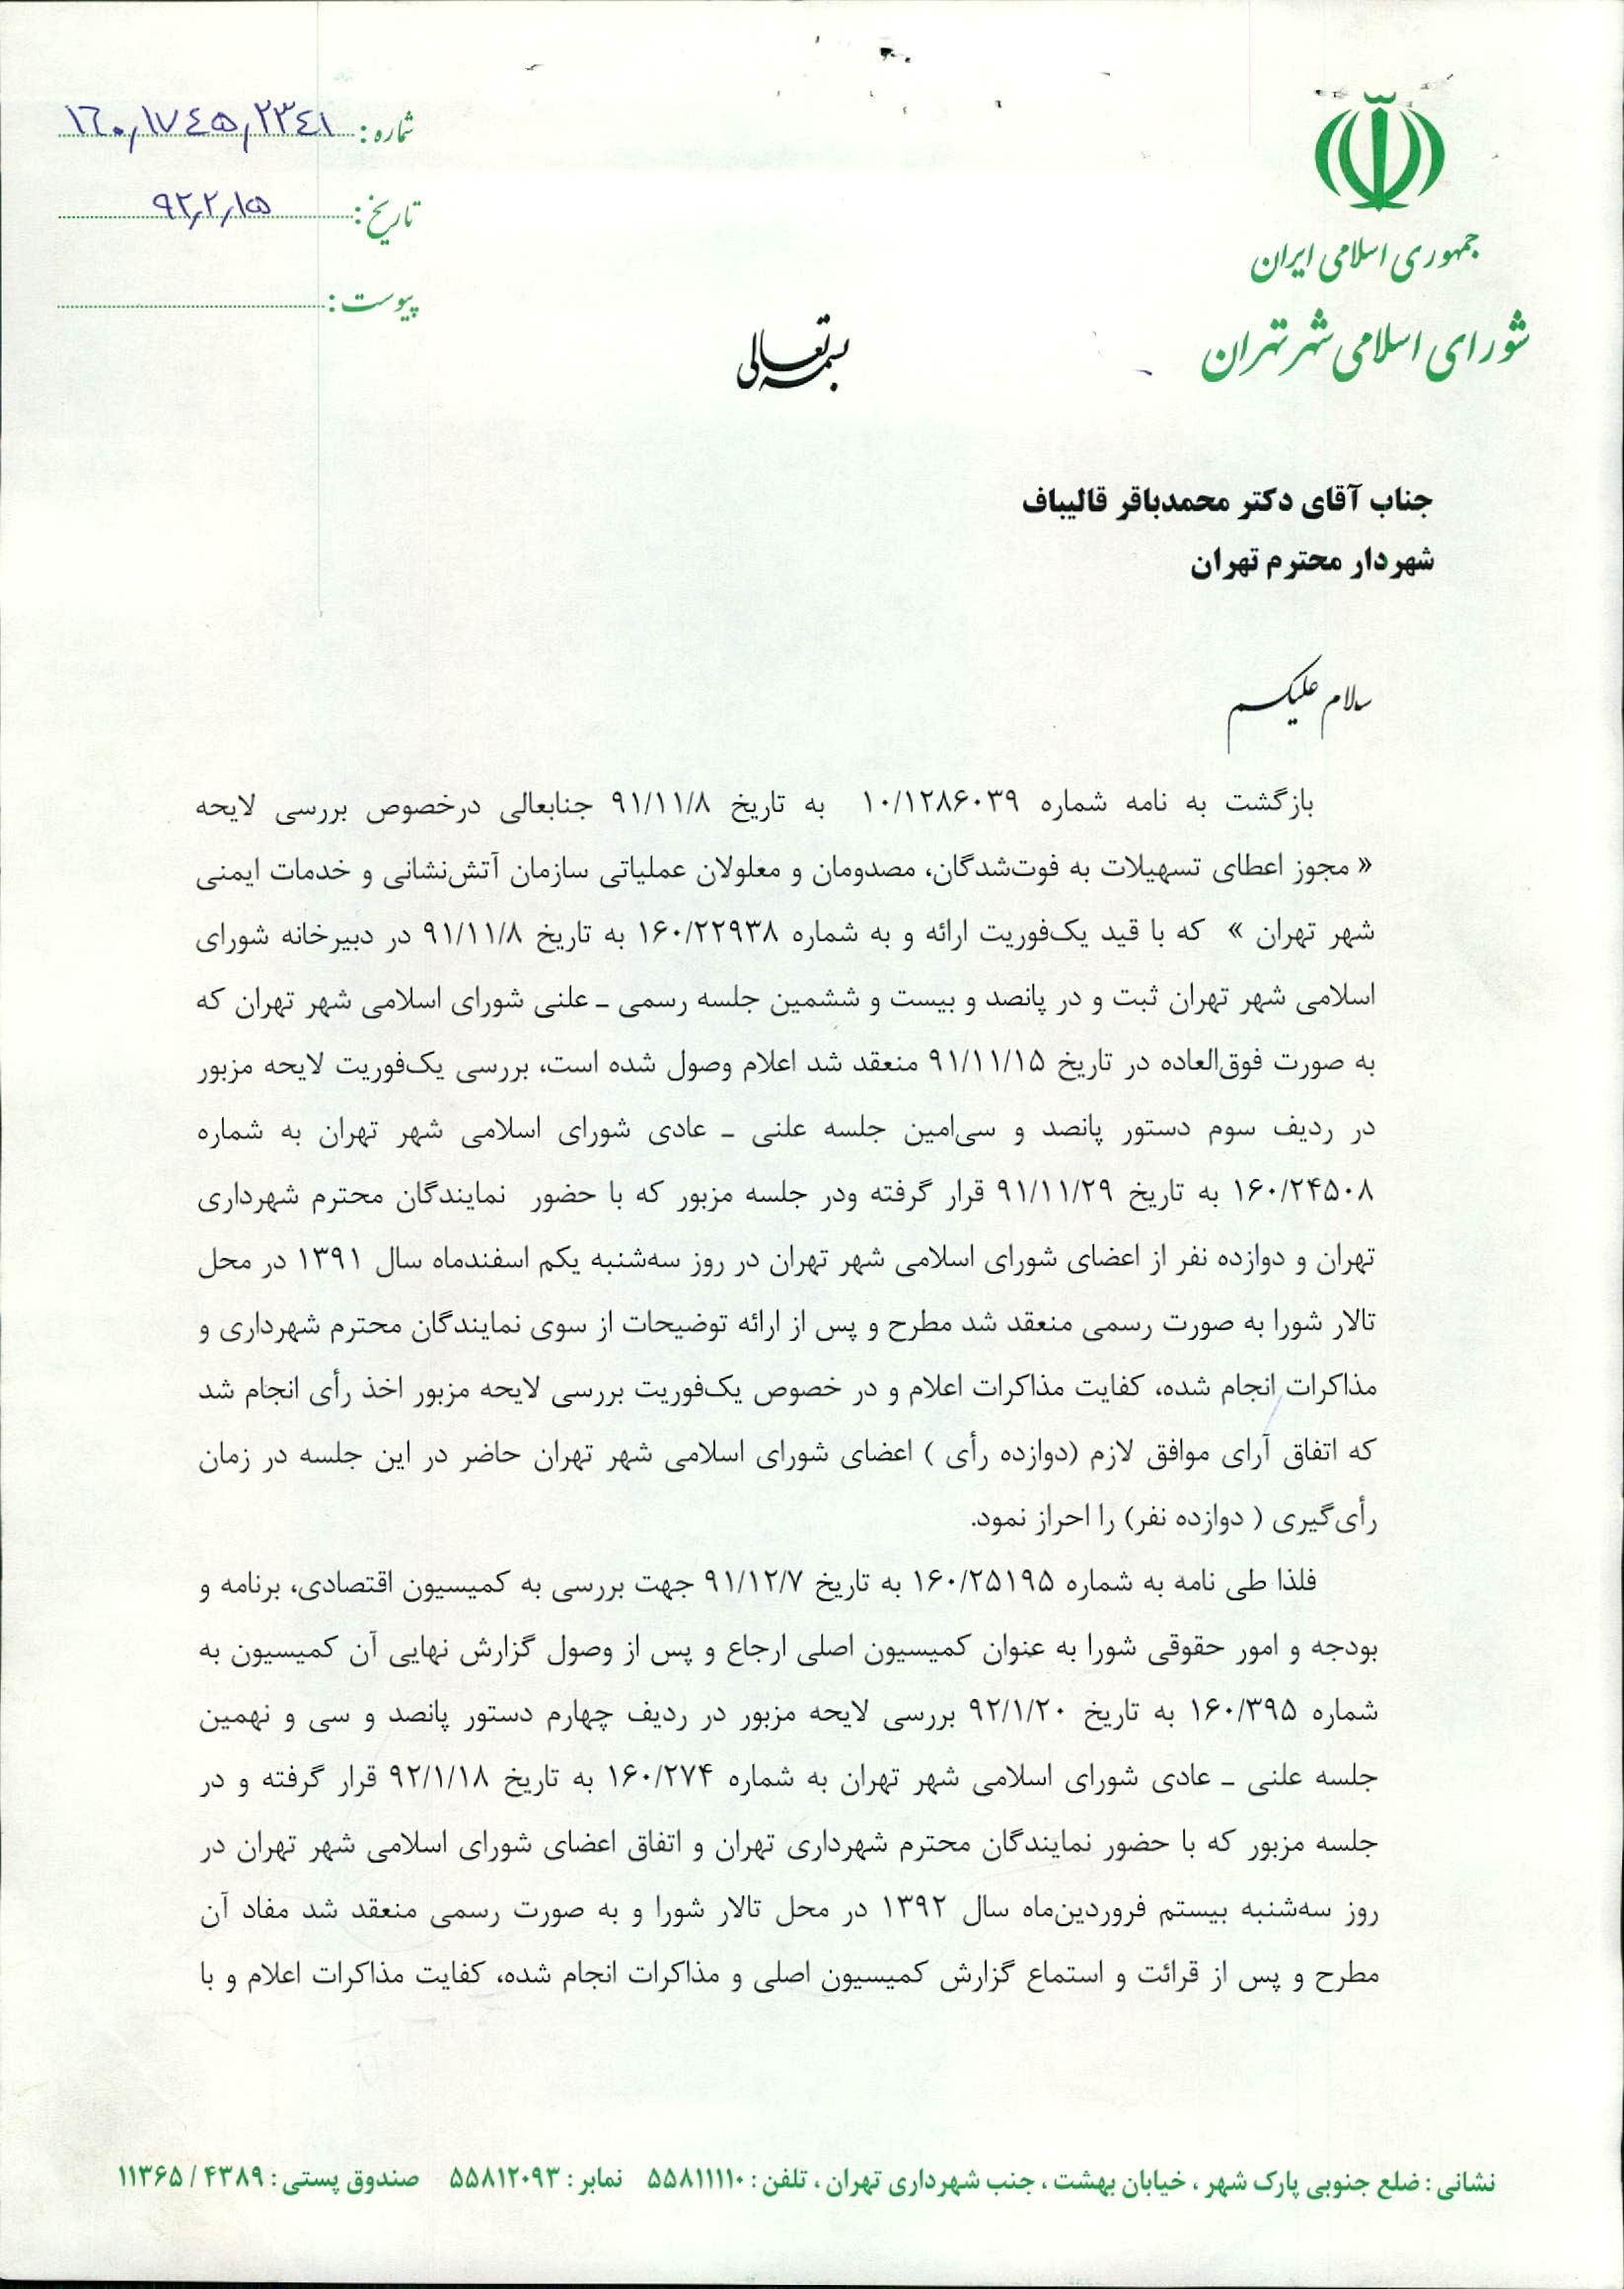 جمهوری اسلامی ایران
شورای اسلامی شهر تهران
شماره: ۱۶۰٫۱۷۴۵٫۲۳۴۱
تاریخ: ۹۲٫۲٫۱۵
پیوست:
بسمه تعالی
جناب آقای دکتر محمدباقر قالیباف
شهردار محترم تهران
سلام علیکم
بازگشت به نامه شماره ۱۰/۱۲۸۶۰۳۹ به تاریخ ۹۱/۱۱/۸ جنابعالی درخصوص بررسی لایحه
« مجوز اعطای تسهیلات به فوت‌شدگان، مصدومان و معلولان عملیاتی سازمان آتش‌نشانی و خدمات ایمنی
شهر تهران » که با قید یک‌فوریت ارائه و به شماره ۱۶۰/۲۲۹۳۸ به تاریخ ۹۱/۱۱/۸ در دبیرخانه شورای
اسلامی شهر تهران ثبت و در پانصد و بیست و ششمین جلسه رسمی ـ علنی شورای اسلامی شهر تهران که
به صورت فوق‌العاده در تاریخ ۹۱/۱۱/۱۵ منعقد شد اعلام وصول شده است، بررسی یک‌فوریت لایحه مزبور
در ردیف سوم دستور پانصد و سی‌امین جلسه علنی ـ عادی شورای اسلامی شهر تهران به شماره
۱۶۰/۲۴۵۰۸ به تاریخ ۹۱/۱۱/۲۹ قرار گرفته ودر جلسه مزبور که با حضور نمایندگان محترم شهرداری
تهران و دوازده نفر از اعضای شورای اسلامی شهر تهران در روز سه‌شنبه یکم اسفندماه سال ۱۳۹۱ در محل
تالار شورا به صورت رسمی منعقد شد مطرح و پس از ارائه توضیحات از سوی نمایندگان محترم شهرداری و
مذاکرات انجام شده، کفایت مذاکرات اعلام و در خصوص یک‌فوریت بررسی لایحه مزبور اخذ رأی انجام شد
که اتفاق آرای موافق لازم (دوازده رأی ) اعضای شورای اسلامی شهر تهران حاضر در این جلسه در زمان
رأی‌گیری ( دوازده نفر) را احراز نمود.
فلذا طی نامه به شماره ۱۶۰/۲۵۱۹۵ به تاریخ ۹۱/۱۲/۷ جهت بررسی به کمیسیون اقتصادی، برنامه و
بودجه و امور حقوقی شورا به عنوان کمیسیون اصلی ارجاع و پس از وصول گزارش نهایی آن کمیسیون به
شماره ۱۶۰/۳۹۵ به تاریخ ۹۲/۱/۲۰ بررسی لایحه مزبور در ردیف چهارم دستور پانصد و سی و نهمین
جلسه علنی ـ عادی شورای اسلامی شهر تهران به شماره ۱۶۰/۲۷۴ به تاریخ ۹۲/۱/۱۸ قرار گرفته و در
جلسه مزبور که با حضور نمایندگان محترم شهرداری تهران و اتفاق اعضای شورای اسلامی شهر تهران در
روز سه‌شنبه بیستم فروردین‌ماه سال ۱۳۹۲ در محل تالار شورا و به صورت رسمی منعقد شد مفاد آن
مطرح و پس از قرائت و استماع گزارش کمیسیون اصلی و مذاکرات انجام شده، کفایت مذاکرات اعلام و با
نشانی : ضلع جنوبی پارک شهر ، خیابان بهشت ، جنب شهرداری تهران ، تلفن : ۵۵۸۱۱۱۱۰ نمابر : ۵۵۸۱۲۰۹۳ صندوق پستی : ۴۳۸۹ / ۱۱۳۶۵